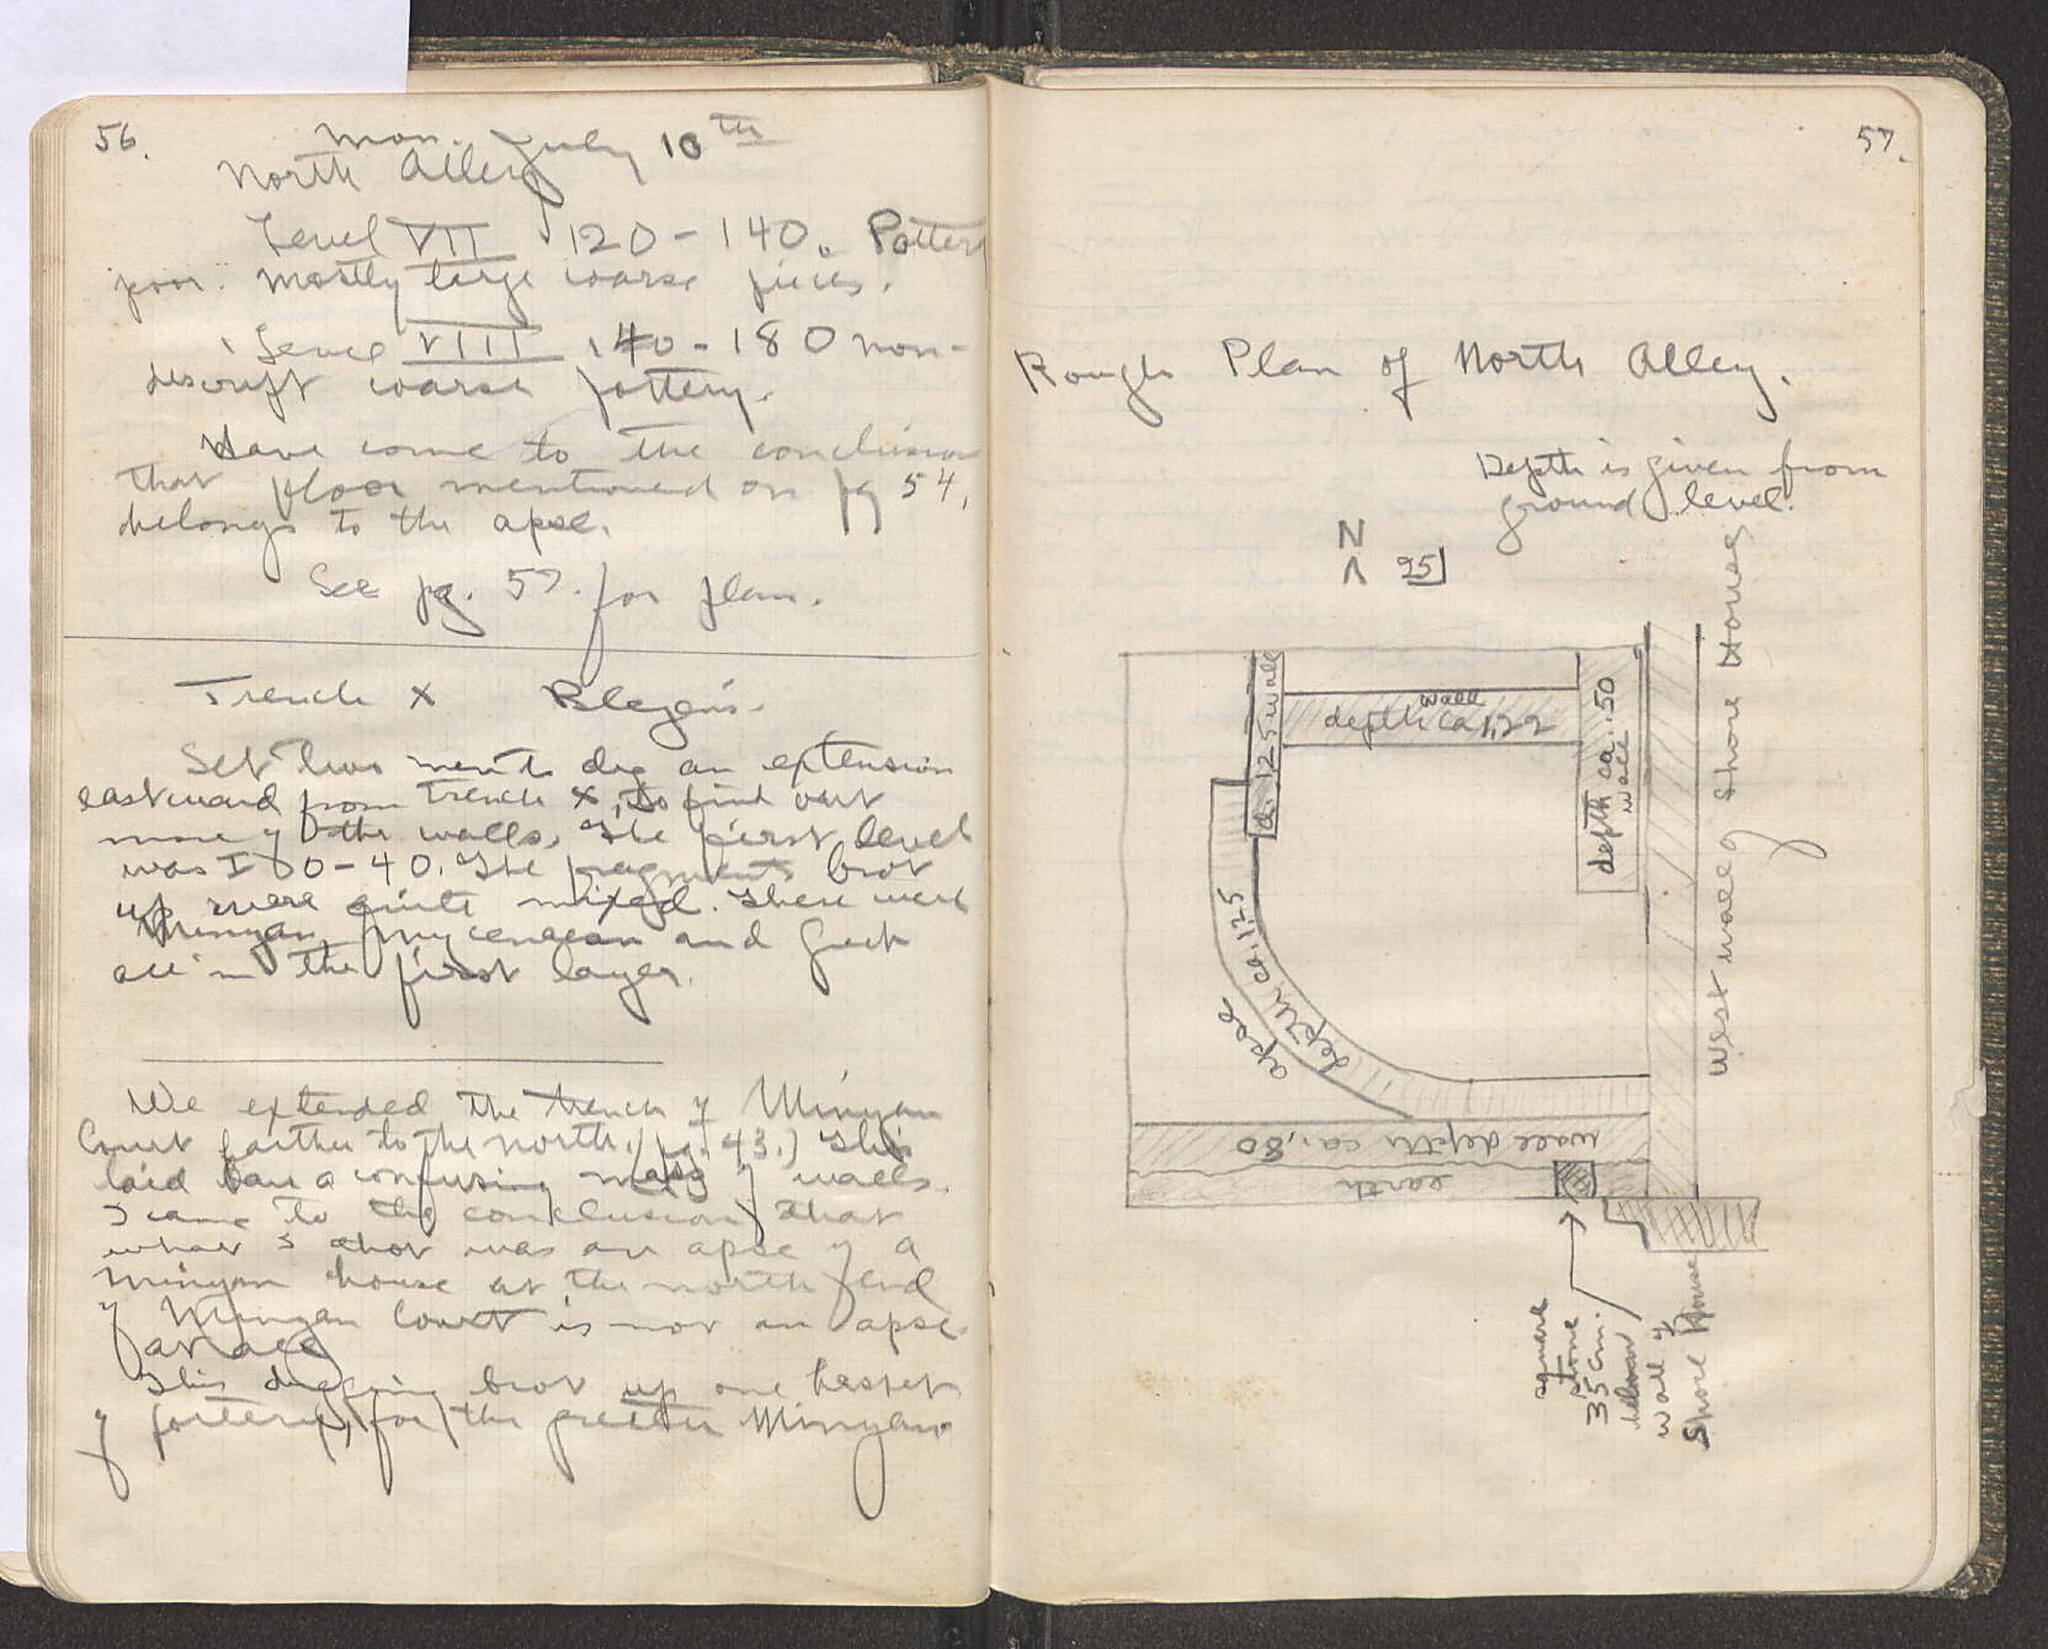 56.
Mon. July 10th
North Alley
Level VII 120-140. Pottery
poor. Mostly large coarse pieces.
Level VIII 140-180 non-
descript coarse pottery.
Have come to the conclusion
that floor mentioned on pg 54,
belongs to the apse.
See pg. 57. for plan.
Trench X Blegen's.
Set two men to dig an extension
eastward from Trench X, to find out
more of the walls. The first level
was I 0-40. The fragments brot
up were quite mixed. There were
Minyan, Mycenaean and Greek
all in the first layer.
We extended the trench of Minyan
Court farther to the north. (pg. 43.) This
laid bare a confusing mass of walls.
I came to the conclusion that
what I thot was an apse of a
Minyan house at the north end
of Minyan Court is not an apse
at all
This digging brot up one basket
of pottery, for the greater Minyan.
57.
Rough Plan of North Alley.
Depth is given from
ground level.
N
25
d. 125 wall
wall
depth ca 1,22
depth ca. .50
wall
West wall of Shore House
apse
depth ca. 1.25
wall depth ca. .80
earth
square
stone
35 cm.
below
wall of
Shore House